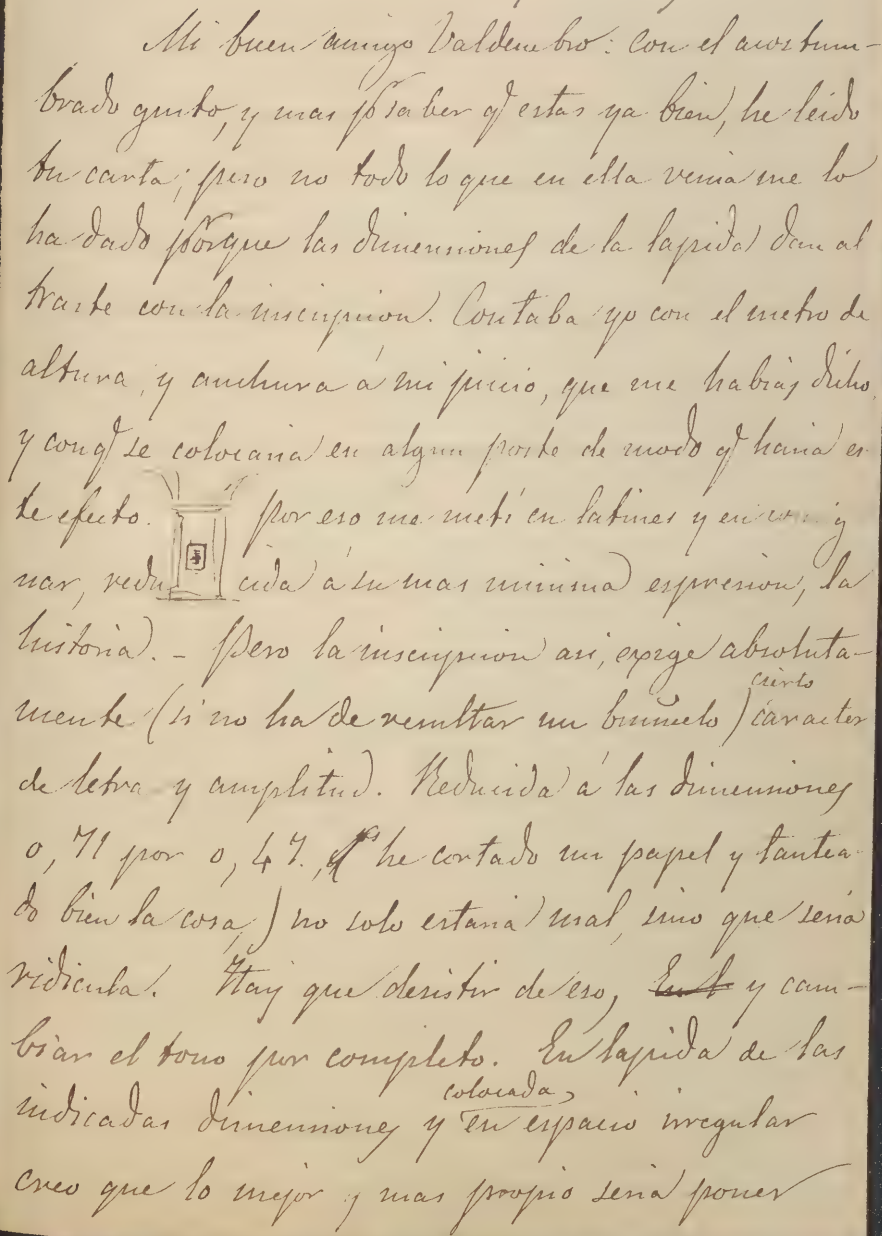 Mi buen amigo Valdenebro: con el acostum-
brado gusto, y mas p.r saber q.e estas ya bien, he leido
tu carta; pero no todo lo que en ella venia me lo
ha dado porque las dimensiones de la lapida dan al
traste con la inscripcion. Contaba yo con el metro de
altura, y anchura á mi juicio, que me habias dicho,
y con q.e se colocaria en algun poste de modo q.e haria es-
te efecto. por eso me metí en latines y en
nar, reducida á su mas minima espresion, la
historia. - Pero la inscripcion asi, exige absoluta-
mente (si no ha de resultar un buñuelo) cierto caracter
de letra y amplitud. Reducida á las dimensiones
0,71 por 0,47. (he cortado un papel y tantea-
do bien la cosa,) no solo estaria mal, sino que seria
ridicula. Hay que desistir de eso, y cam-
biar el tono por completo. En lapida de las
indicadas dimensiones y colocada en espacio irregular
creo que lo mejor y mas propio seria poner